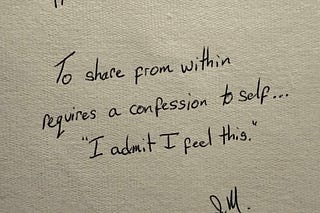 To share from within
requires a confession to self...
"I admit I feel this."
J.M.